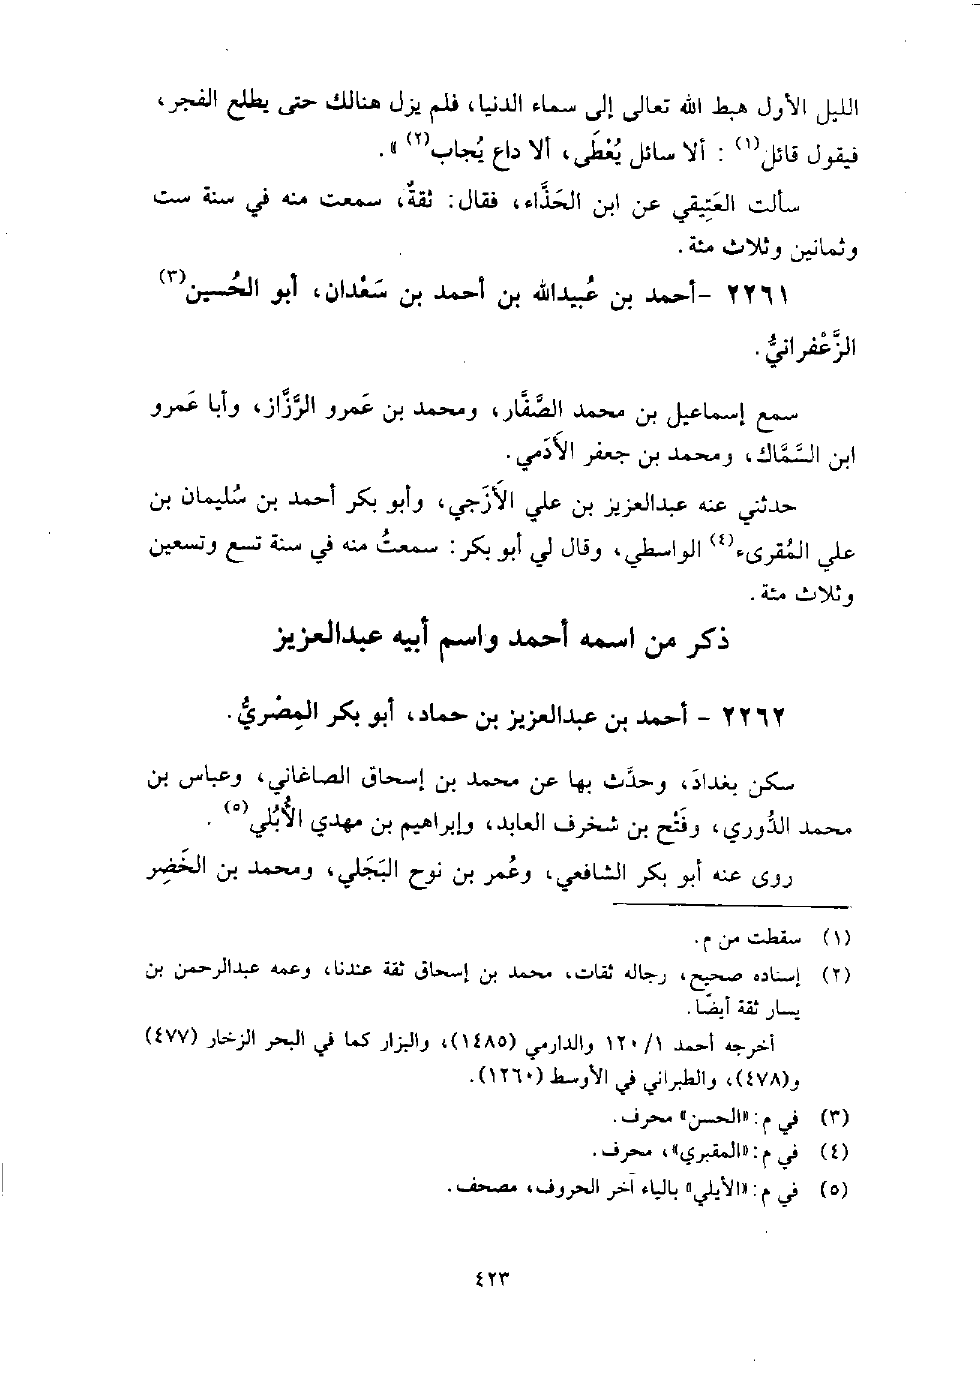 الليل الأول هبط الله تعالى إلى سماء الدنيا، فلم يزل هنالك حتى يطلع الفجر،
فيقول قائل(١) : ألا سائل يُعْطَى، ألا داع يُجاب(٢) » .
سألت العَتِيقي عن ابن الحَذَّاء، فقال: ثقةٌ، سمعت منه في سنة ست
وثمانين وثلاث مئة.
٢٢٦١ -أحمد بن عُبيدالله بن أحمد بن سَعْدان، أبو الحُسين(٣)
الزَّعْفرانيُّ.
سمع إسماعيل بن محمد الصَّفَّار، ومحمد بن عَمرو الرَّزَّاز، وأبا عَمرو
ابن السَّمَّاك، ومحمد بن جعفر الأدَمي.
حدثني عنه عبدالعزيز بن علي الأزَجي، وأبو بكر أحمد بن سُليمان بن
علي المُقرىء(٤) الواسطي، وقال لي أبو بكر: سمعتُ منه في سنة تسع وتسعين
وثلاث مئة.
ذكر من اسمه أحمد واسم أبيه عبدالعزيز
٢٢٦٢ - أحمد بن عبدالعزيز بن حماد، أبو بكر المِصْريُّ.
سكن بغدادَ، وحدَّث بها عن محمد بن إسحاق الصاغاني، وعباس بن
محمد الدُّوري، وفَتْح بن شخرف العابد، وإبراهيم بن مهدي الأُبُلي(٥) .
روى عنه أبو بكر الشافعي، وعُمر بن نوح البَجَلي، ومحمد بن الخَضِر
(١) سقطت من م.
(٢) إسناده صحيح، رجاله ثقات، محمد بن إسحاق ثقة عندنا، وعمه عبدالرحمن بن
يسار ثقة أيضًا.
أخرجه أحمد ١/ ١٢٠ والدارمي (١٤٨٥)، والبزار كما في البحر الزخار (٤٧٧)
و(٤٧٨)، والطبراني في الأوسط (١٢٦٠).
(٣) في م: «الحسن» محرف.
(٤) في م: «المقبري»، محرف.
(٥) في م: «الأيلي» بالياء آخر الحروف، مصحف.
٤٢٣